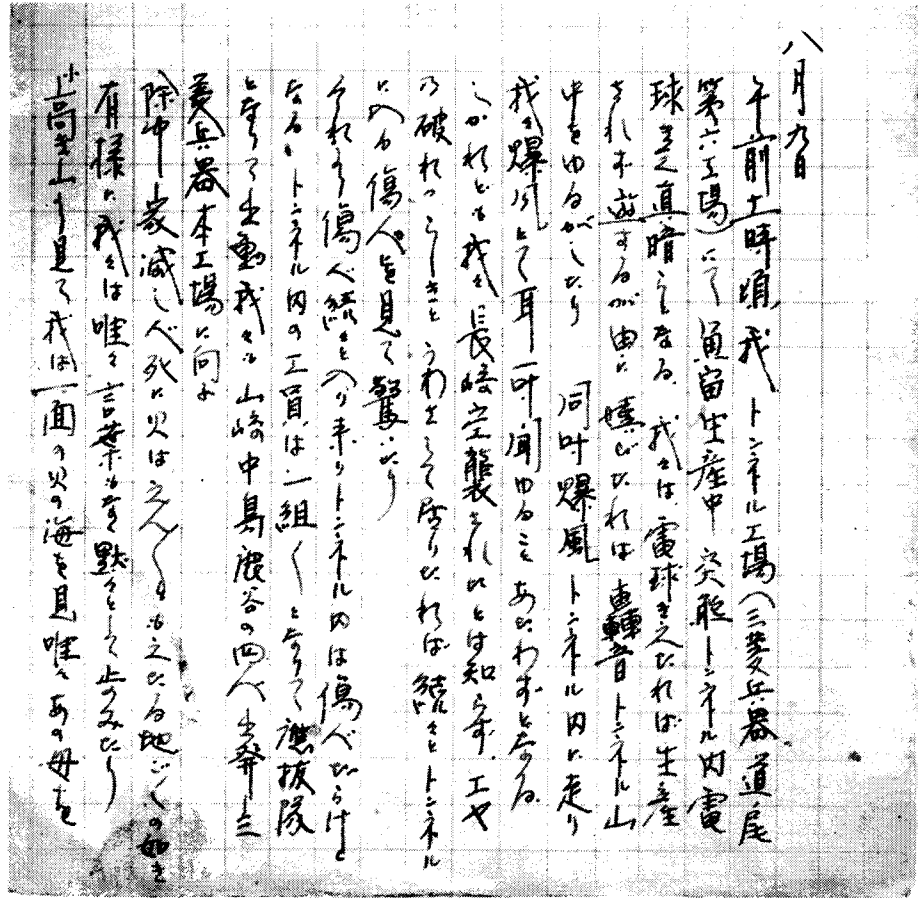 八月九日
午前十一時頃、我トンネル工場(三菱兵器道尾
第六工場)にて魚雷生産中 突然トンネル内電
球きえ直暗らとなる。我々は電球きえたれば生産
されず遊するが由に喜びたれば 轟音トンネル山
中をゆるがしたり 同時爆風トンネル内に走り
我々爆風とて耳一時聞ゆること あたわずとなる
しかれども我々長崎空襲されたとは知らず、エヤ
の破れつらしきと うわさして居りたれば 続々とトンネル
に入る傷人を見て驚いたり
それより傷人続々と入り来りトンネル内は傷人だらけと
なる トンネル内の工員は一組〱となりて應援隊
となりて出動我々も山崎 中島 渡谷の四人出発 三
菱兵器本工場に向ふ
除中家滅し人死に火はえん〱ともえたる地ごくの如き
有様に我々は唯々言葉もなく黙々として止のみたり
小高き上より見て我は一面の火の海を見唯々あの母を